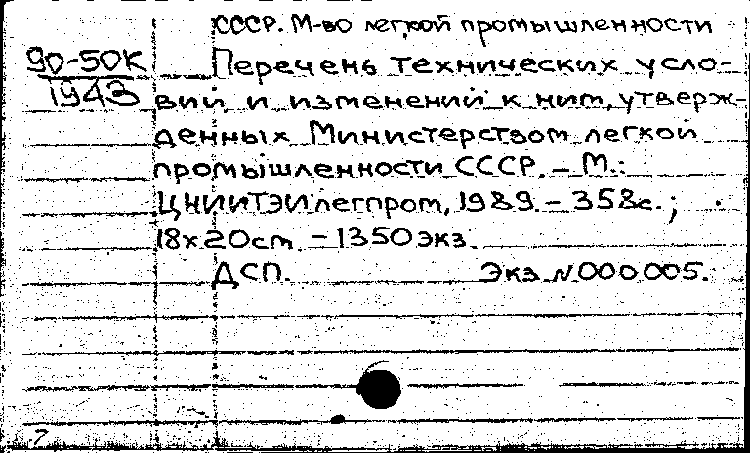 СССР. М-во легкой промышленности
90-50К Перечень технических усло-
1943 вий и изменений к ним, утверж-
денных Министерством легкой
промышленности СССР. – М.:
ЦНИИТЭИлегпром, 1989. – 358с.;
18х20ст – 1350экз.
ДСП. Экз. N000005.